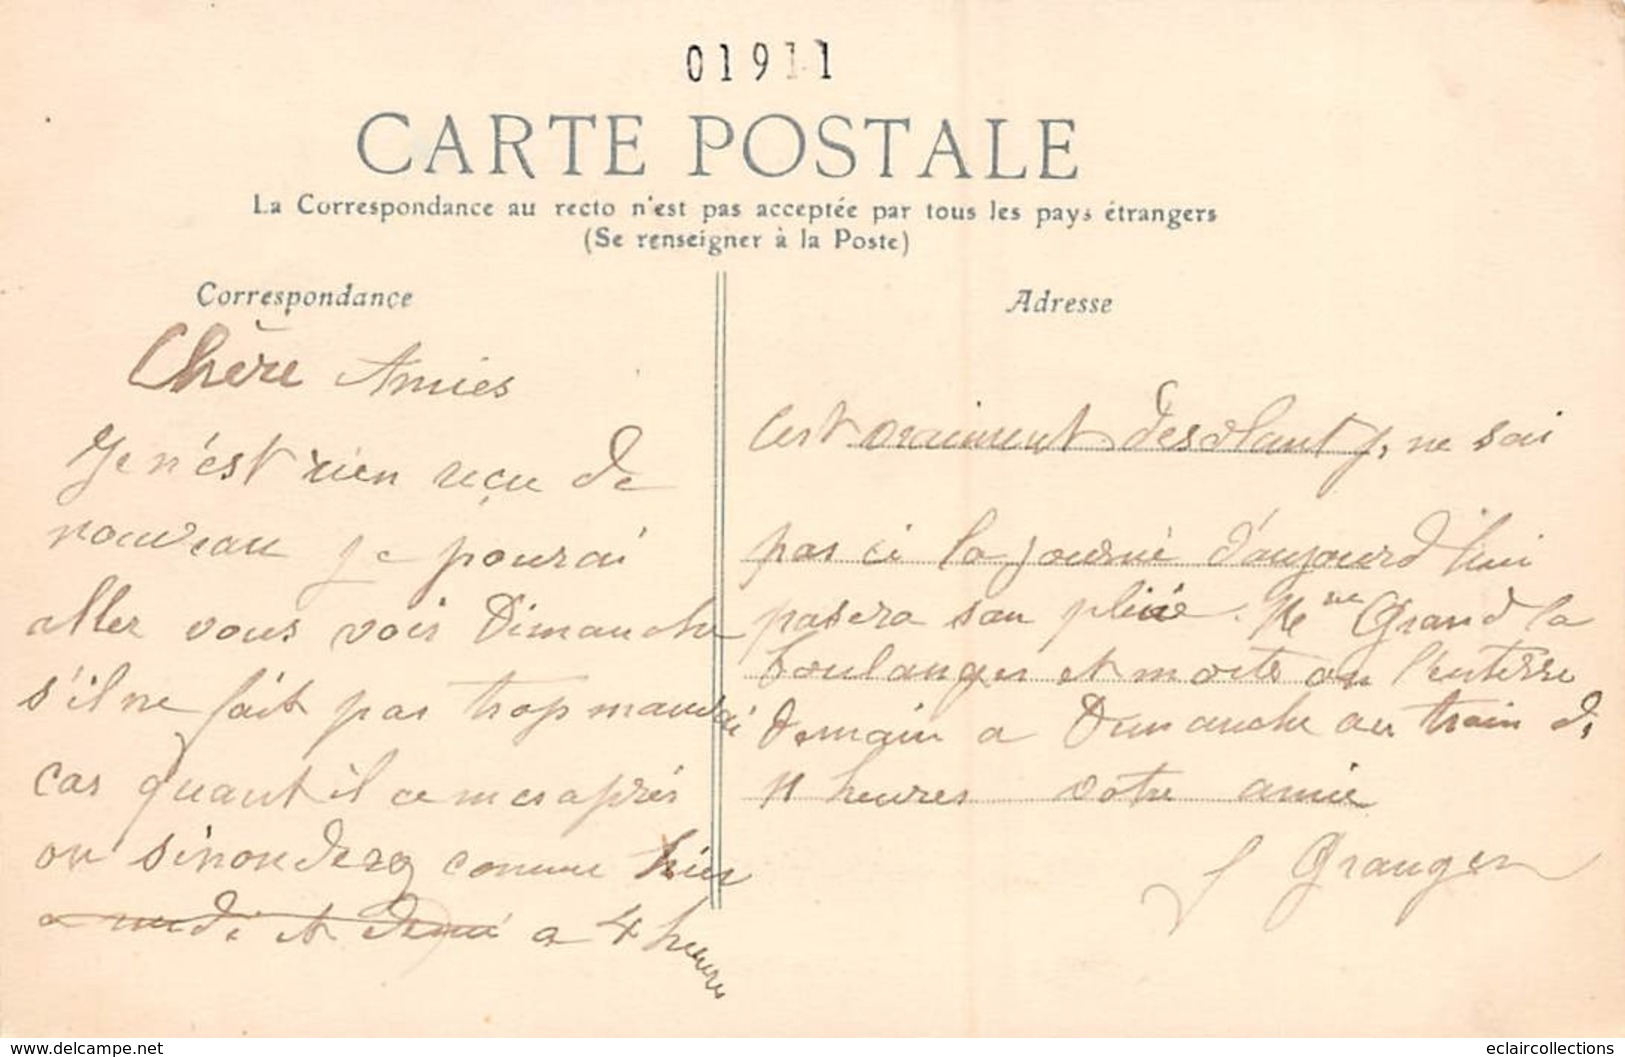 01911
CARTE POSTALE
La Correspondance au recto n'est pas acceptée par tous les pays étrangers
(Se renseigner à la Poste)
Correspondance
Chère Amies
Je n'est rien reçu de
nouveau je pourai
aller vous voir Dimanche
s'il ne fait pas trop mauvai
car quant il
on comme hier
a midi et demi a 4 heures
Adresse
Cest vraiment desolant j, ne sai
pas ci la journé d'aujourd'hui
pasera san pluie. Mme Grand la
boulanger et morte on l'enterre
Demain a Dimanche au train d,
11 heures votre amie
Granger
www.delcampe.net
eclaircollections